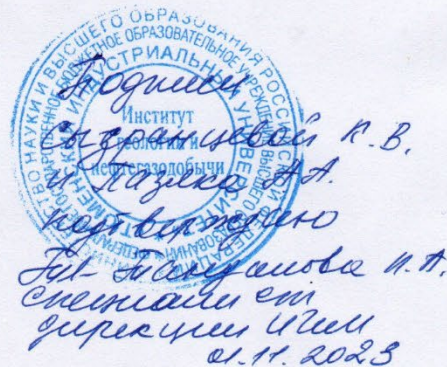 МИНИСТЕРСТВО НАУКИ И ВЫСШЕГО ОБРАЗОВАНИЯ РОССИЙСКОЙ ФЕДЕРАЦИИ
БЮДЖЕТНОЕ ОБРАЗОВАТЕЛЬНОЕ УЧРЕЖДЕНИЕ ВЫСШЕГО ОБРАЗОВАНИЯ
ИНДУСТРИАЛЬНЫЙ УНИВЕРСИТЕТ
Институт
геологии и
нефтегазодобычи
Подписи
Сызранцевой К.В.
и Пазяка А.А.
подтверждаю
специалист
дирекции ИГиН
01.11.2023